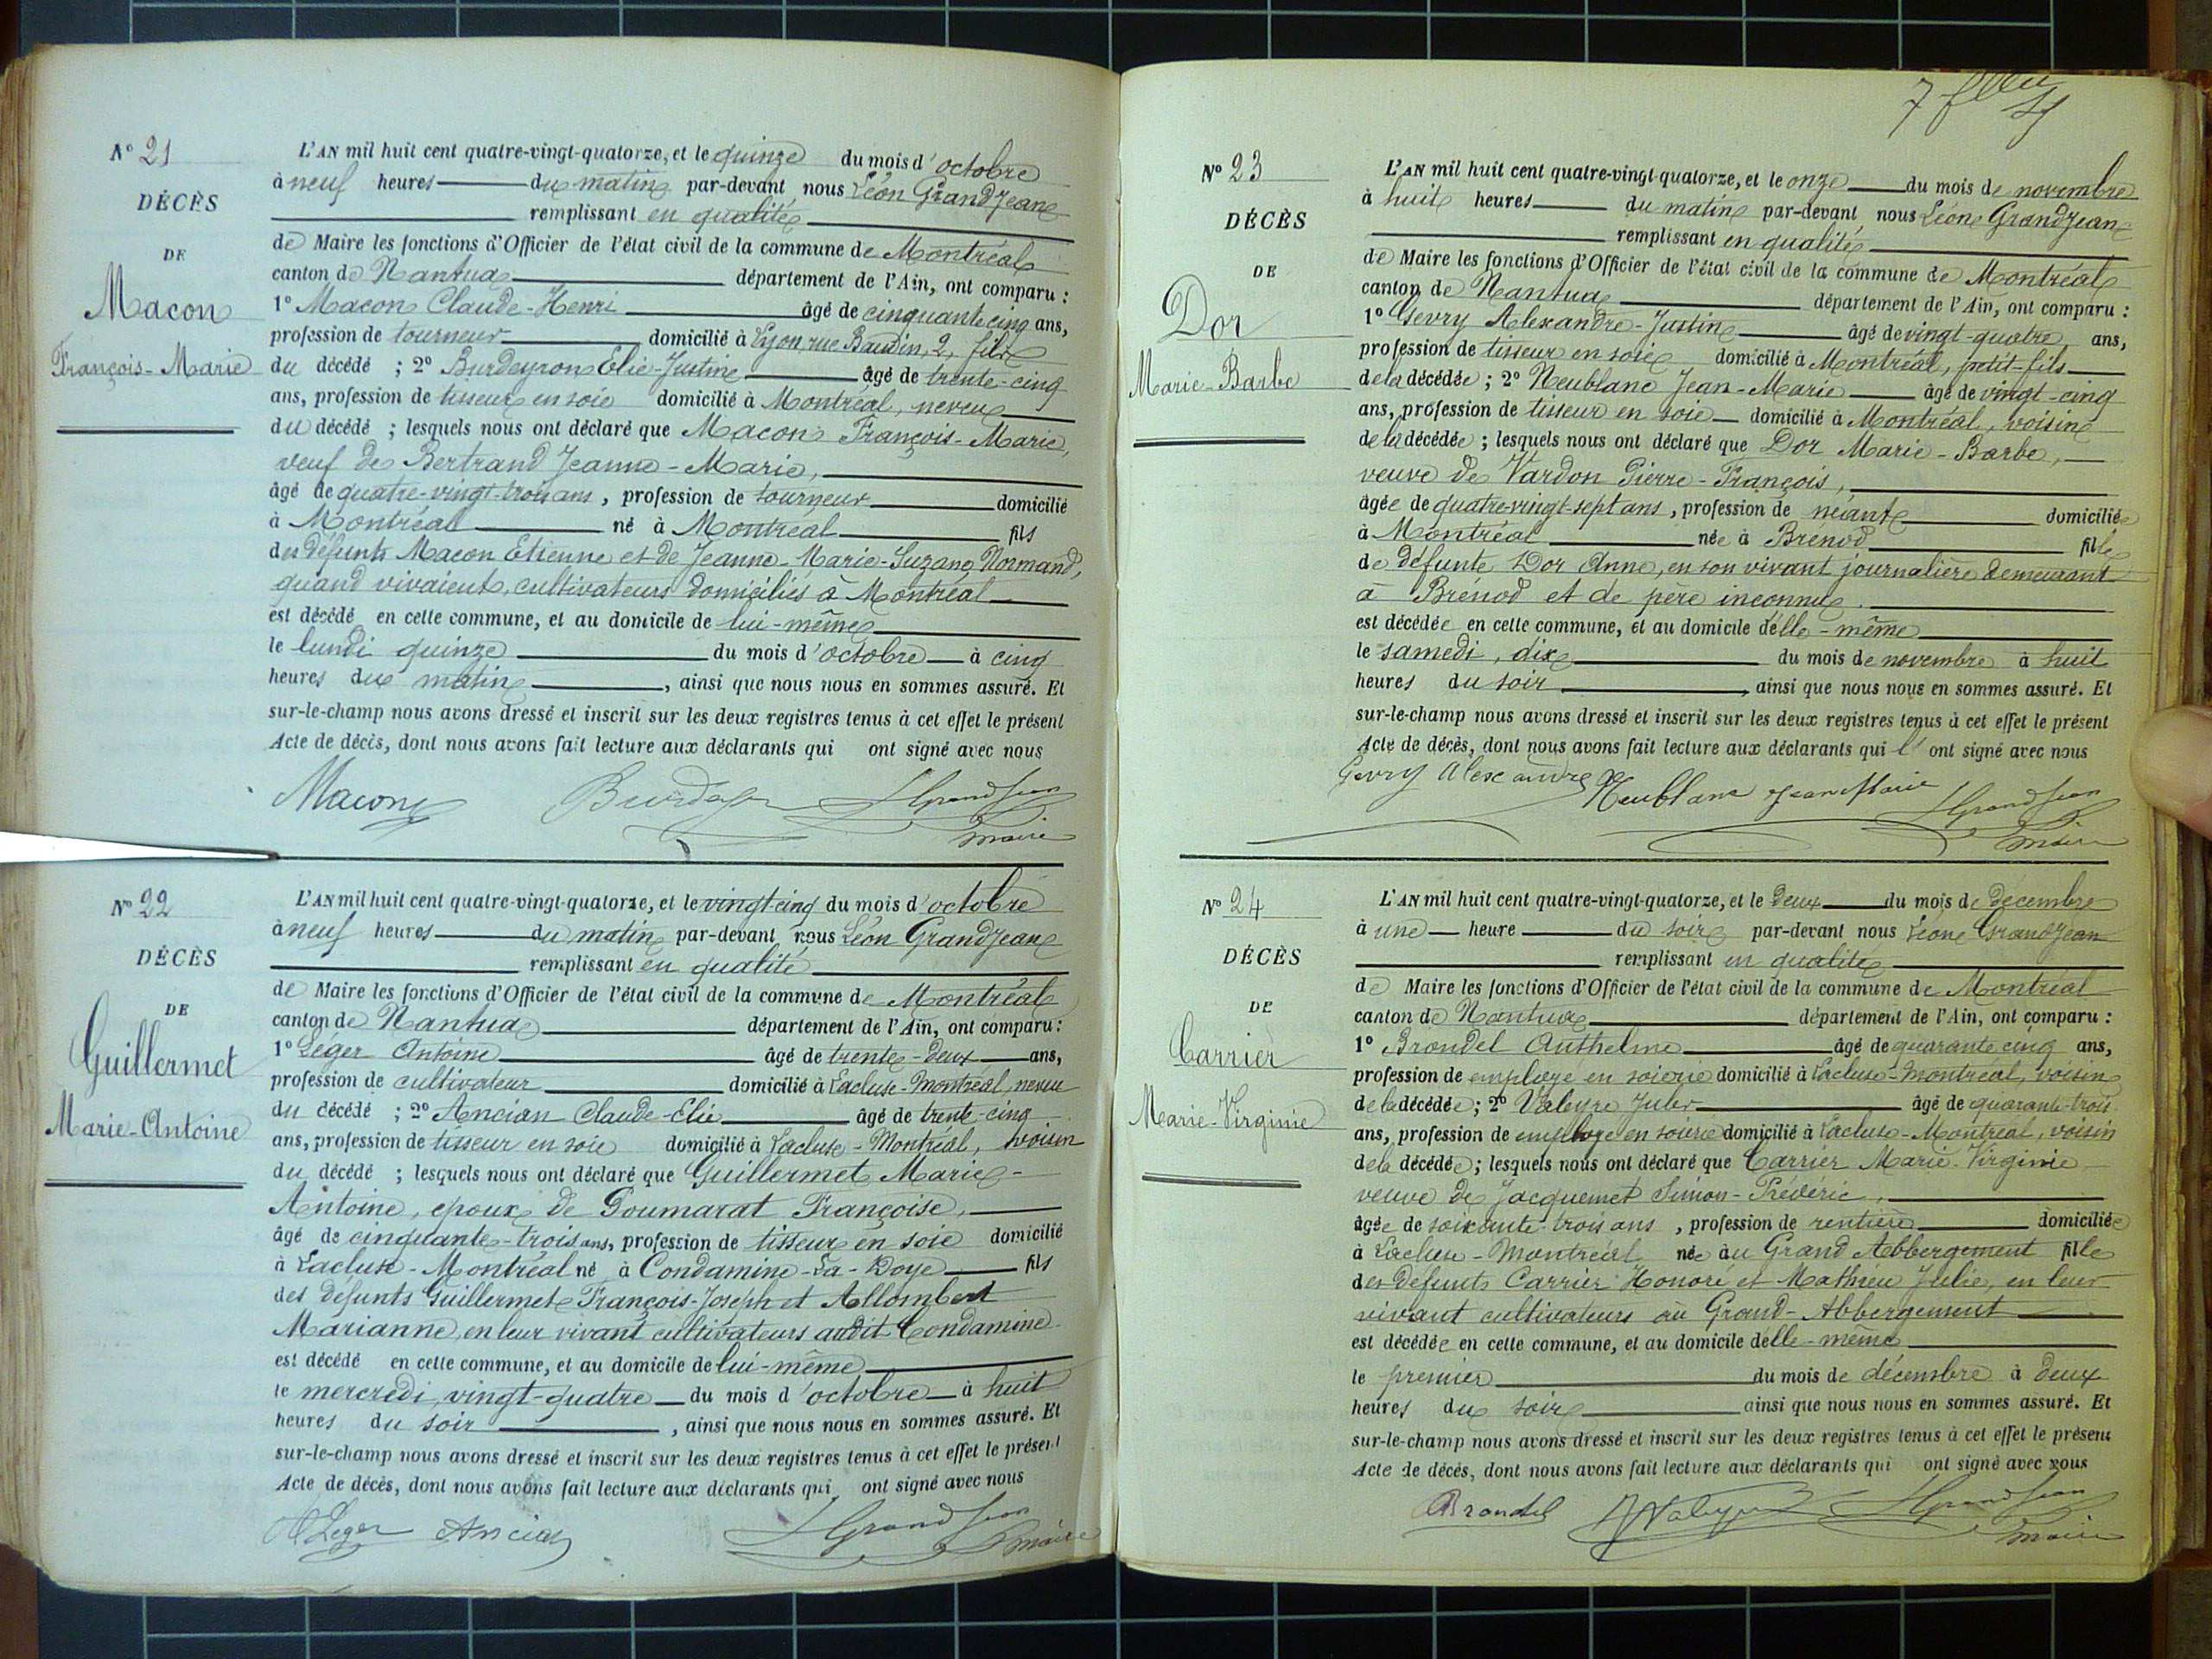 N° 21
DÉCÈS
DE
Macon
François-Marie
L'AN mil huit cent quatre-vingt-quatorze, et le quinze du mois d'octobre
à neuf heures du matin par-devant nous Léon Grandjean
remplissant en qualité
de Maire les fonctions d'Officier de l'état civil de la commune de Montréal
canton de Nantua département de l'Ain, ont comparu :
1° Macon Claude-Henri âgé de cinquante cinq ans,
profession de tourneur domicilié à Lyon, rue Baudin, 2, fils
du décédé ; 2° Burdeyron Elie-Justin âgé de trente-cinq
ans, profession de tisseur en soie domicilié à Montréal, neveu
du décédé ; lesquels nous ont déclaré que Macon François-Marie,
veuf de Bertrand Jeanne-Marie,
âgé de quatre-vingt-trois ans, profession de tourneur domicilié
à Montréal né à Montréal fils
des défunts Macon Etienne et de Jeanne-Marie-Suzane Normand,
quand vivaient, cultivateurs domiciliés à Montréal
est décédé en cette commune, et au domicile de lui-même
le lundi quinze du mois d'octobre à cinq
heures du matin, ainsi que nous nous en sommes assuré. Et
sur-le-champ nous avons dressé et inscrit sur les deux registres tenus à cet effet le présent
Acte de décès, dont nous avons fait lecture aux déclarants qui ont signé avec nous
Macon LGrandjean
maire
N° 22
DÉCÈS
DE
Guillermet
Marie-Antoine
L'AN mil huit cent quatre-vingt-quatorze, et le vingt-cinq du mois d'octobre
à neuf heures du matin par-devant nous Léon Grandjean
remplissant en qualité
de Maire les fonctions d'Officier de l'état civil de la commune de Montréal
canton de Nantua département de l'Ain, ont comparu :
1° Leger Antoine âgé de trente-deux ans,
profession de cultivateur domicilié à Lacluse-Montréal, neveu
du décédé ; 2° Ancian Claude-Elie âgé de trente-cinq
ans, profession de tisseur en soie domicilié à Lacluse-Montréal, voisin
du décédé ; lesquels nous ont déclaré que Guillermet Marie-
Antoine, époux de Goumarat Françoise,
âgé de cinquante-trois ans, profession de tisseur en soie domicilié
à Lacluse-Montréal né à Condamine-La-Doye fils
des défunts Guillermet François-Joseph et Allombert
Marianne, en leur vivant cultivateurs audit Condamine
est décédé en cette commune, et au domicile de lui-même
le mercredi, vingt-quatre du mois d'octobre à huit
heures du soir, ainsi que nous nous en sommes assuré. Et
sur-le-champ nous avons dressé et inscrit sur les deux registres tenus à cet effet le présent
Acte de décès, dont nous avons fait lecture aux déclarants qui ont signé avec nous
Leger Ancian LGrandjean
maire
N° 23
DÉCÈS
DE
Dor
Marie-Barbe
L'AN mil huit cent quatre-vingt-quatorze, et le onze du mois de novembre
à huit heures du matin par-devant nous Léon Grandjean
remplissant en qualité
de Maire les fonctions d'Officier de l'état civil de la commune de Montréal
canton de Nantua département de l'Ain, ont comparu :
1° Gevry Alexandre-Justin âgé de vingt-quatre ans,
profession de tisseur en soie domicilié à Montréal, petit-fils
de la décédée ; 2° Neublanc Jean-Marie âgé de vingt-cinq
ans, profession de tisseur en soie domicilié à Montréal, voisin
de la décédée ; lesquels nous ont déclaré que Dor Marie-Barbe,
veuve de Vardon Pierre-François,
âgée de quatre-vingt-sept ans, profession de néant domiciliée
à Montréal née à Brénod fille
de défunte Dor Anne, en son vivant journalière demeurant
à Brénod et de père inconnu.
est décédée en cette commune, et au domicile d'elle-même
le samedi, dix du mois de novembre à huit
heures du soir, ainsi que nous nous en sommes assuré. Et
sur-le-champ nous avons dressé et inscrit sur les deux registres tenus à cet effet le présent
Acte de décès, dont nous avons fait lecture aux déclarants qui l'ont signé avec nous
Gevry Alexandre Neublanc Jean Marie LGrandjean
maire
N° 24
DÉCÈS
DE
Carrier
Marie-Virginie
L'AN mil huit cent quatre-vingt-quatorze, et le deux du mois de décembre
à une heure du soir par-devant nous Léon Grandjean
remplissant en qualité
de Maire les fonctions d'Officier de l'état civil de la commune de Montréal
canton de Nantua département de l'Ain, ont comparu :
1° Brondel Anthelme âgé de quarante cinq ans,
profession de employé en soierie domicilié à Lacluse-Montréal, voisin
de la décédée ; 2° Valeyre Jules âgé de quarante-trois
ans, profession de employé en soierie domicilié à Lacluse-Montréal, voisin
de la décédée ; lesquels nous ont déclaré que Carrier Marie-Virginie
veuve de Jacquemet Simon-Frédéric,
âgée de soixante-trois ans, profession de rentière domiciliée
à Lacluse-Montréal née au Grand Abbergement fille
des défunts Carrier Honoré et Mathieu Julie, en leur
vivant cultivateurs au Grand-Abbergement
est décédée en cette commune, et au domicile d'elle-même
le premier du mois de décembre à deux
heures du soir ainsi que nous nous en sommes assuré. Et
sur-le-champ nous avons dressé et inscrit sur les deux registres tenus à cet effet le présent
Acte de décès, dont nous avons fait lecture aux déclarants qui ont signé avec nous
Brondel Valeyre LGrandjean
maire